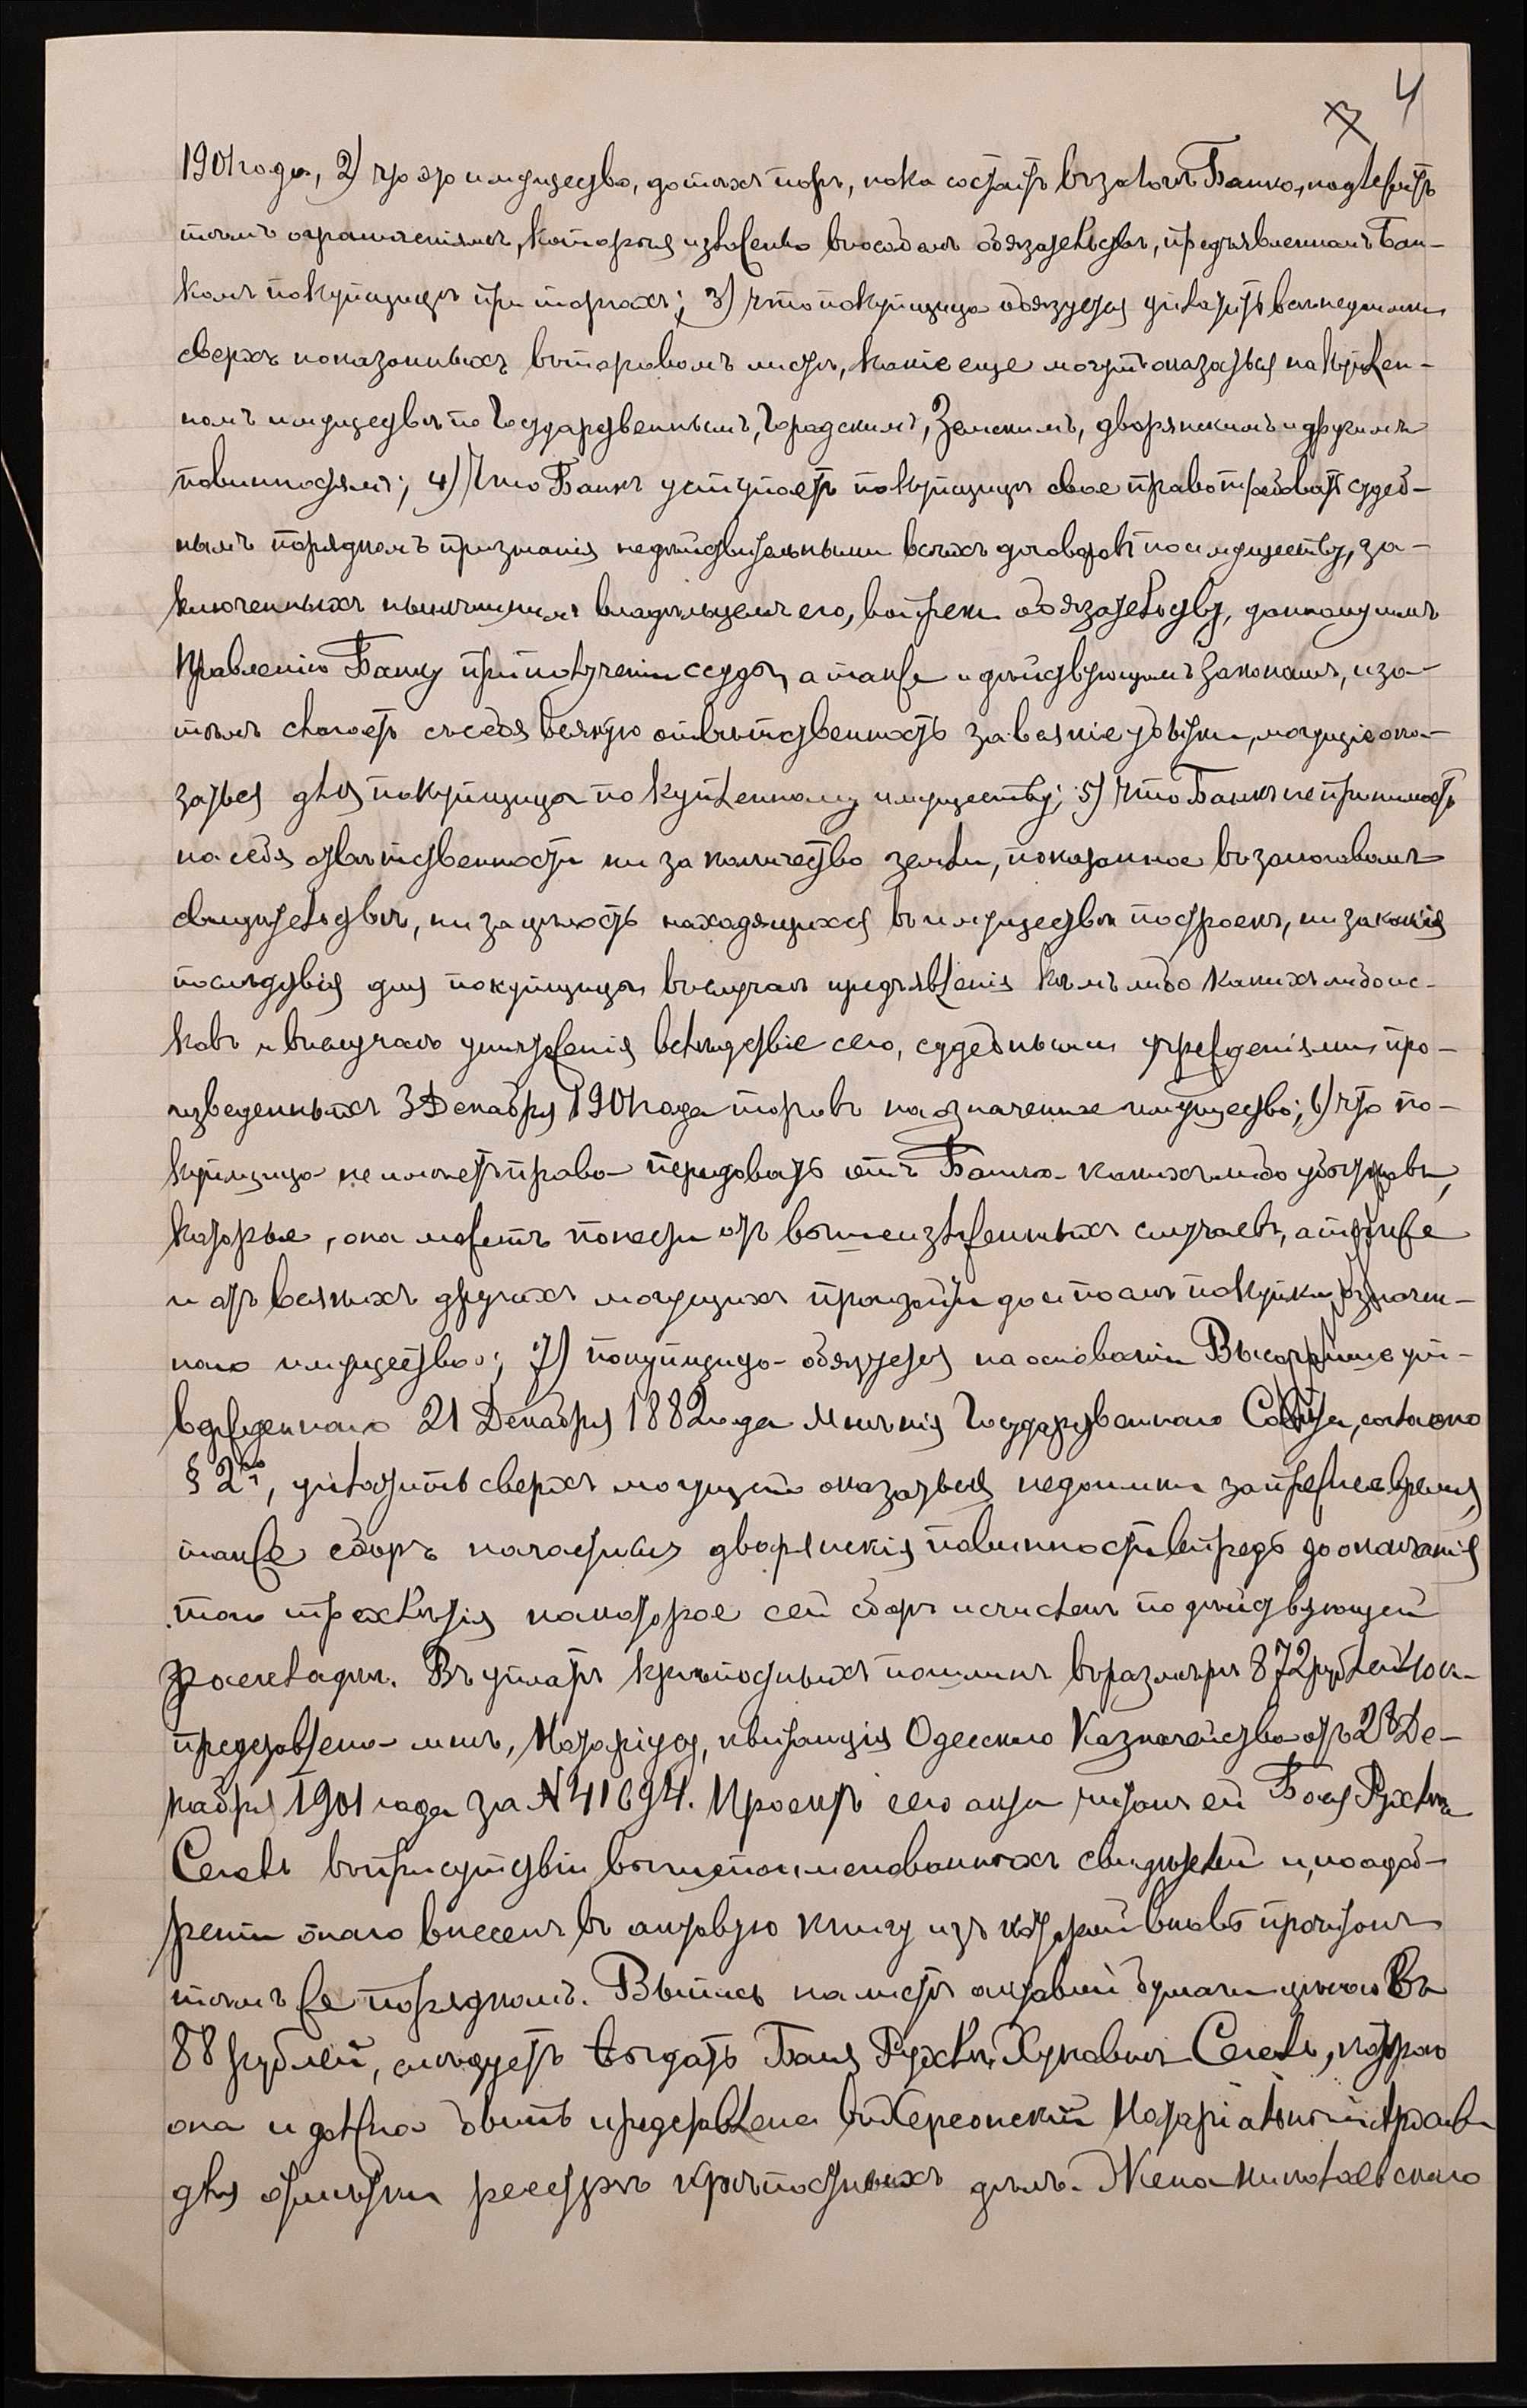 4
1901 года, 2) что это имущество, до тѣхъ поръ, пока состоитъ въ залогѣ Банка, подлежитъ
тѣмъ ограниченіямъ, которыя изложены въ особомъ обязательствѣ, предъявленномъ Бан-
комъ покупщицѣ при торгахъ; 3) что покупщица обязуется уплатить всѣ недоимки
сверхъ показанныхъ въ торговомъ листѣ, какіе еще могутъ оказаться на куплен-
номъ имуществѣ по Государственнымъ, Городскимъ, Земскимъ, дворянскимъ и другимъ
повинностямъ; 4) Что Банкъ уступаетъ покупщицѣ свое право требовать судеб-
нымъ порядкомъ признанія недѣйствительными всѣхъ договоровъ по имуществу, за-
ключенныхъ нынѣшнимъ владѣльцемъ его, вопреки обязательству, данному имъ
Правленію Банку при полученіи ссуды, а также и дѣйствующимъ законамъ, и за-
тѣмъ слагаетъ съ себя всякую отвѣтственность за всякіе убытки, могущіе ока-
заться для покупщицы по купленному имуществу; 5) Что Банкъ не принимаетъ
на себя отвѣтственности ни за количество земли, показанное въ залоговомъ
свидѣтельствѣ, ни за цѣлость находящихся въ имуществѣ построекъ, ни за какія
послѣдствія для покупщицы въ случаѣ предъявленія кѣмъ либо какихъ либо ис-
ковъ и въ случаѣ уничтоженія вслѣдствіе сего, судебными учрежденіями, про-
изведенныхъ 3 Декабря 1901 года торговъ на означенное имущество; 6) что по-
купщица не имѣетъ права требовать отъ Банка какихъ либо убытковъ,
которые, она можетъ понести отъ вышеизложенныхъ случаевъ, а также
и отъ всякихъ другихъ могущихъ произойти до и послѣ покупки означен-
наго имущества; 7) покупщица обязуется на основаніи Высочайше ут-
вержденнаго 21 Декабря 1882 года Мнѣнія Государственнаго Совѣта, согласно
§ 2го, уплатить сверхъ могущей оказаться недоимки за прежнее время,
также сборъ на частныя дворянскія повинности впредь до окончанія
того трехлѣтія на которое сей сборъ исчисленъ по дѣйствующей
раскладкѣ. Въ уплатѣ крѣпостныхъ пошлинъ въ размѣрѣ 872 рублей 40 к.
представлена мнѣ, Нотаріусу, квитанція Одесскаго Казначейства отъ 28 Де-
кабря 1901 года за № 41694. Проектъ сего акта читанъ ей Басѣ Рухлѣ
Сегалъ въ присутствіи вышепоименованныхъ свидѣтелей и, по одоб-
реніи онаго внесенъ въ актовую книгу изъ которой вновь прочитанъ
тѣмъ же порядкомъ. Выпись на листѣ актовой бумаги цѣною въ
88 рублей, слѣдуетъ выдать Басѣ Рухлѣ Хуновнѣ Сегалъ, которою
она и должна быть представлена въ Херсонскій Нотаріальный Архивъ
для отмѣтки реестрѣ крѣпостныхъ дѣлъ. Жена Николаевскаго